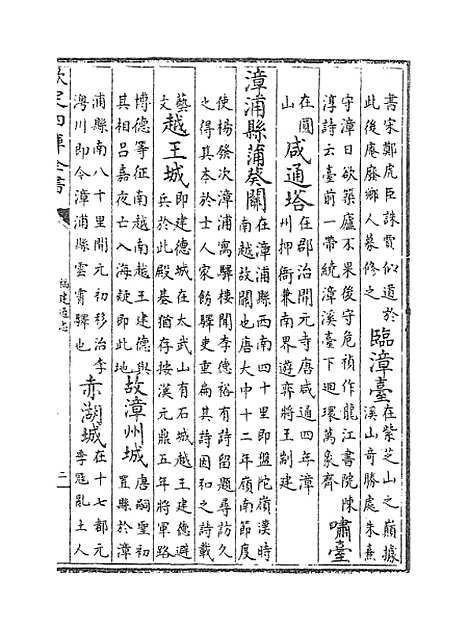 書宋鄭虎臣誅賈似道於
此後庵廢鄉人募修之
臨漳臺
在紫芝山之巔據
溪山奇勝處朱熹
守漳日欲築廬不果後守危稹作龍江書院陳
淳詩云臺前一帶繞漳溪臺下迴環萬象齊
嘯臺
在圓
山
咸通塔
在郡治開元寺唐咸通四年漳
州押衙兼南界遊奕將王剬建
漳浦縣蒲葵關
在漳浦縣西南四十里即盤陀嶺漢時
南越故關也唐大中十二年嶺南節度
使楊發次漳浦寓驛樓聞李德裕有詩留題尋訪久
之得其本於士人家飭驛吏重扁其詩因和之詩載
藝
文
越王城
即建德城在太武山有石城越王建德避
兵於此殿基猶存按漢元鼎五年將軍路
博德等征南越南越王建德與
其相呂嘉夜亡入海疑即此地
故漳州城
唐嗣聖初
置縣於漳
浦縣南八十里開元初移治李
澚川即今漳浦縣雲霄驛也
赤湖城
在十七都元
季冦亂土人
欽定四庫全書
福建通志
二